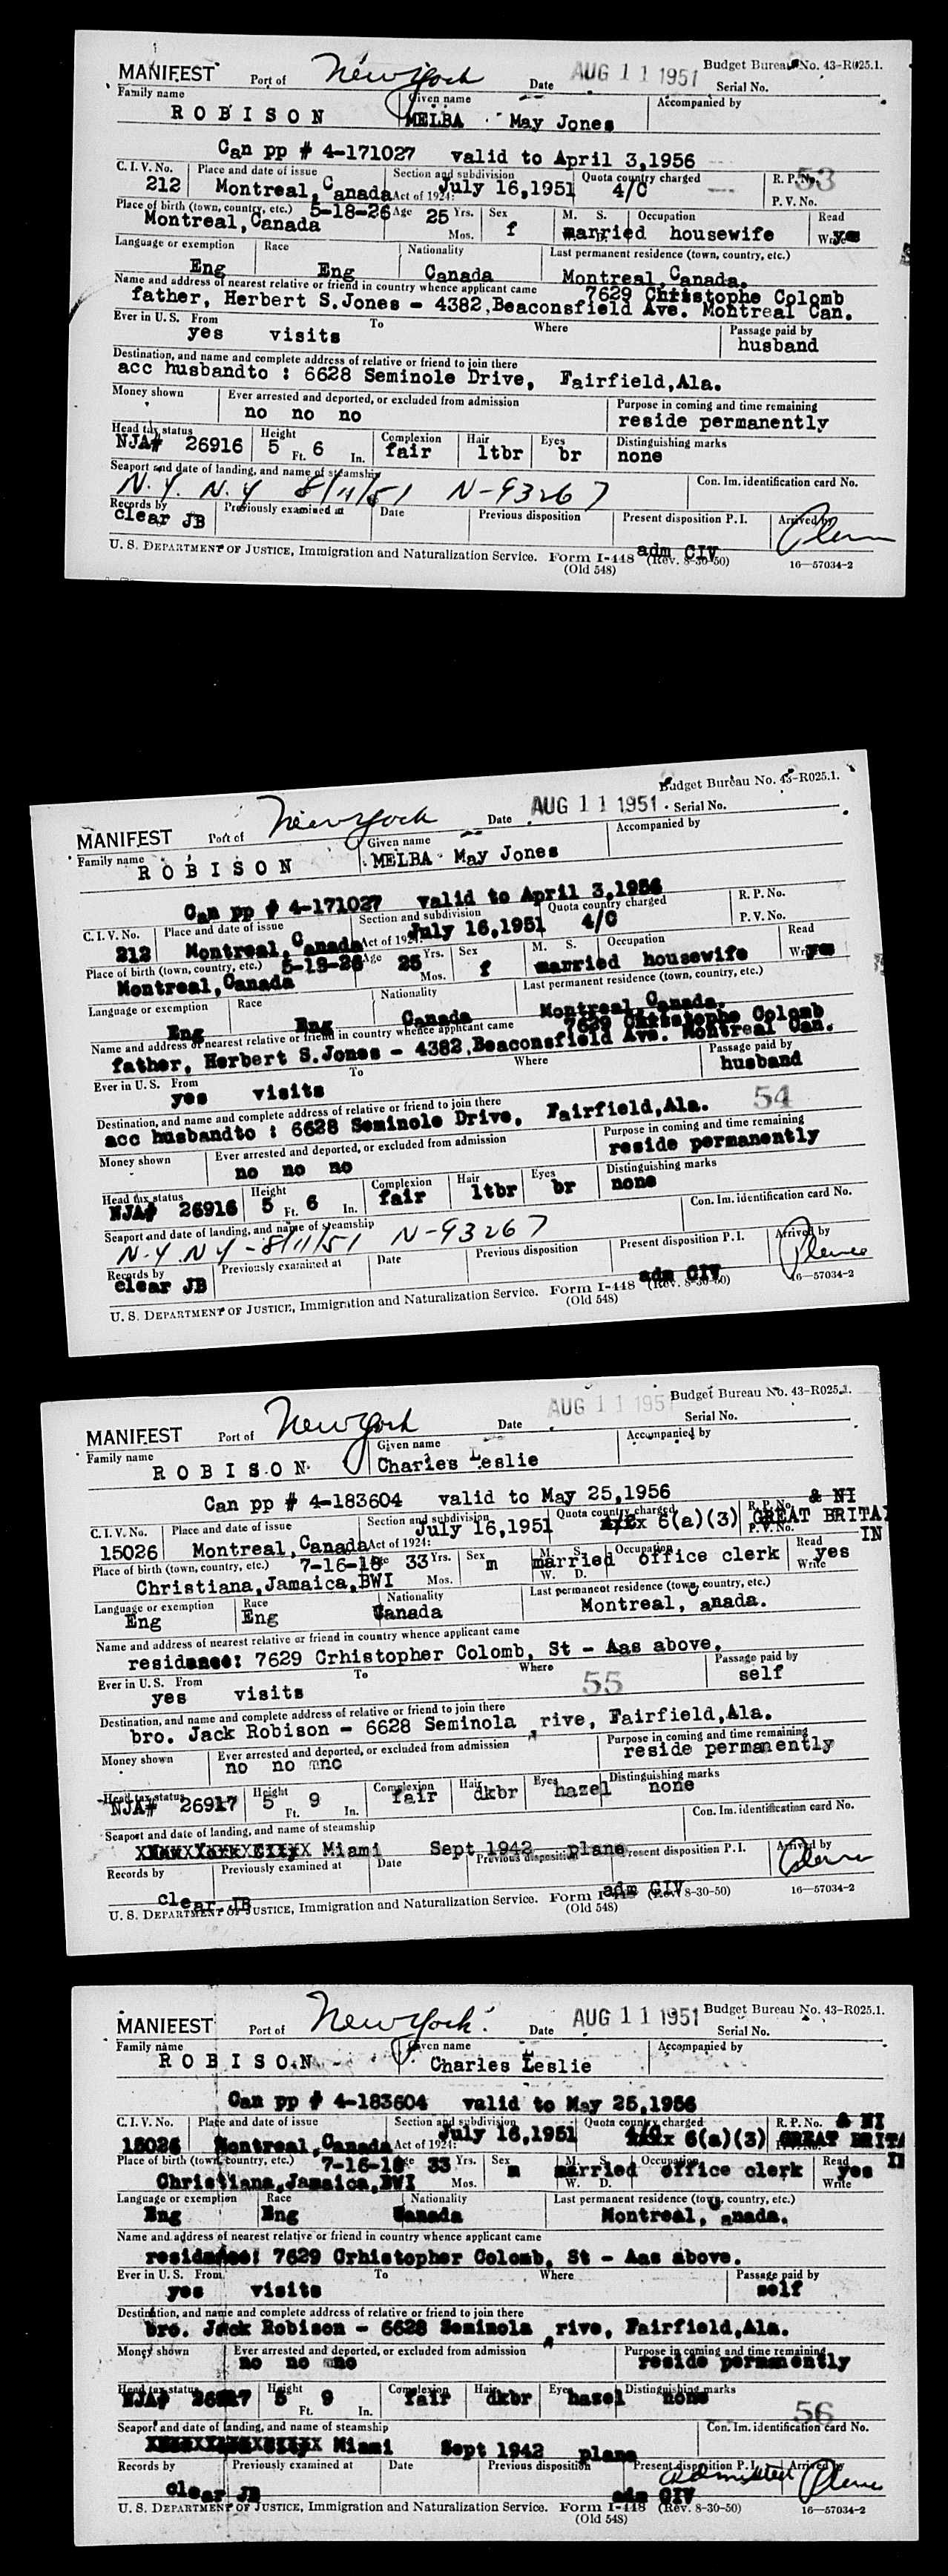 MANIFEST Port of New York Date AUG 11 1951 Budget Bureau No. 43-R025.1.
Serial No.
Family name Given name Accompanied by
ROBISON MELBA May Jones
Can pp # 4-171027 valid to April 3,1956
C. I. V. No. Place and date of issue Section and subdivision Quota country charged R. P. No. 53
212 Montreal, Canada Act of 1924: July 16,1951 4/C P. V. No.
Place of birth (town, country, etc.) 5-18-26 Age 25 Yrs. Sex M. S. Occupation Read
Montreal,Canada Mos. f married housewife Write yes
Language or exemption Race Nationality Last permanent residence (town, country, etc.)
Eng Eng Canada Montreal,Canada.
Name and address of nearest relative or friend in country whence applicant came 7629 Christophe Colomb
father, Herbert S.Jones - 4382,Beaconsfield Ave. Montreal Can.
Ever in U. S. From To Where Passage paid by
yes visits husband
Destination, and name and complete address of relative or friend to join there
acc husbandto : 6628 Seminole Drive, Fairfield,Ala.
Money shown Ever arrested and deported, or excluded from admission Purpose in coming and time remaining
no no no reside permanently
Head tax status Height Complexion Hair Eyes Distinguishing marks
NJA# 26916 5 Ft. 6 In. fair ltbr br none
Seaport and date of landing, and name of steamship Con. Im. identification card No.
N.Y. N.Y 8/11/51 N-93267
Records by Previously examined at Date Previous disposition Present disposition P. I. Arrived by
clear JB adm CIV
U. S. DEPARTMENT OF JUSTICE, Immigration and Naturalization Service. Form I-448 (Rev. 8-30-50) 16—57034-2
(Old 548)
MANIFEST Port of New York Date AUG 11 1951 Budget Bureau No. 43-R025.1.
Serial No.
Family name Given name Accompanied by
ROBISON MELBA May Jones
Can pp # 4-171027 valid to April 3,1956
C. I. V. No. Place and date of issue Section and subdivision Quota country charged R. P. No.
212 Montreal, Canada Act of 1924: July 16,1951 4/C P. V. No.
Place of birth (town, country, etc.) 5-18-26 Age 25 Yrs. Sex M. S. Occupation Read
Montreal,Canada Mos. f married housewife Write yes
Language or exemption Race Nationality Last permanent residence (town, country, etc.)
Eng Eng Canada Montreal,Canada.
Name and address of nearest relative or friend in country whence applicant came 7629 Christophe Colomb
father, Herbert S.Jones - 4382,Beaconsfield Ave. Montreal Can.
Ever in U. S. From To Where Passage paid by
yes visits husband
Destination, and name and complete address of relative or friend to join there 54
acc husbandto : 6628 Seminole Drive, Fairfield,Ala.
Money shown Ever arrested and deported, or excluded from admission Purpose in coming and time remaining
no no no reside permanently
Head tax status Height Complexion Hair Eyes Distinguishing marks
NJA# 26916 5 Ft. 6 In. fair ltbr br none
Seaport and date of landing, and name of steamship Con. Im. identification card No.
N.Y. N.Y - 8/11/51 N-93267
Records by Previously examined at Date Previous disposition Present disposition P. I. Arrived by
clear JB adm CIV
U. S. DEPARTMENT OF JUSTICE, Immigration and Naturalization Service. Form I-448 (Rev. 8-30-50) 16—57034-2
(Old 548)
MANIFEST Port of New York Date AUG 11 1951 Budget Bureau No. 43-R025.1.
Serial No.
Family name Given name Accompanied by
ROBISON Charles Leslie
Can pp # 4-183604 valid to May 25,1956
C. I. V. No. Place and date of issue Section and subdivision Quota country charged R. P. No. & NI
15026 Montreal, Canada Act of 1924: July 16,1951 6(a)(3) P. V. No. GREAT BRITAIN
Place of birth (town, country, etc.) 7-16-18 Age 33 Yrs. Sex M. S. Occupation Read
Christiana,Jamaica,BWI Mos. m married W. D. office clerk Write yes
Language or exemption Race Nationality Last permanent residence (town, country, etc.)
Eng Eng Canada Montreal, Canada.
Name and address of nearest relative or friend in country whence applicant came
residence: 7629 Crhistopher Colomb, St - Aas above.
Ever in U. S. From To Where Passage paid by
yes visits 55 self
Destination, and name and complete address of relative or friend to join there
bro. Jack Robison - 6628 Seminola rive, Fairfield,Ala.
Money shown Ever arrested and deported, or excluded from admission Purpose in coming and time remaining
no no no reside permanently
Head tax status Height Complexion Hair Eyes Distinguishing marks
NJA# 26917 5 Ft. 9 In. fair dkbr hazel none
Seaport and date of landing, and name of steamship Con. Im. identification card No.
Miami Sept 1942 plane
Records by Previously examined at Date Previous disposition Present disposition P. I. Arrived by
clear JB adm CIV
U. S. DEPARTMENT OF JUSTICE, Immigration and Naturalization Service. Form I-448 (Rev. 8-30-50) 16—57034-2
(Old 548)
MANIFEST Port of New York. Date AUG 11 1951 Budget Bureau No. 43-R025.1.
Serial No.
Family name Given name Accompanied by
ROBISON Charles Leslie
Can pp # 4-183604 valid to May 25,1956
C. I. V. No. Place and date of issue Section and subdivision Quota country charged R. P. No. & NI
15026 Montreal, Canada Act of 1924: July 16,1951 6(a)(3) GREAT BRITA
Place of birth (town, country, etc.) 7-16-18 Age 33 Yrs. Sex M. S. Occupation Read
Christiana,Jamaica,BWI Mos. m married W. D. office clerk Write yes
Language or exemption Race Nationality Last permanent residence (town, country, etc.)
Eng Eng Canada Montreal, Canada.
Name and address of nearest relative or friend in country whence applicant came
residence: 7629 Crhistopher Colomb, St - Aas above.
Ever in U. S. From To Where Passage paid by
yes visits self
Destination, and name and complete address of relative or friend to join there
bro. Jack Robison - 6628 Seminola rive, Fairfield,Ala.
Money shown Ever arrested and deported, or excluded from admission Purpose in coming and time remaining
no no no reside permanently
Head tax status Height Complexion Hair Eyes Distinguishing marks
NJA# 26917 5 Ft. 9 In. fair dkbr hazel none
56
Seaport and date of landing, and name of steamship Con. Im. identification card No.
Miami Sept 1942 plane
Records by Previously examined at Date Previous disposition Present disposition P. I. Arrived by
clear JB admitted adm CIV
U. S. DEPARTMENT OF JUSTICE, Immigration and Naturalization Service. Form I-448 (Rev. 8-30-50) 16—57034-2
(Old 548)